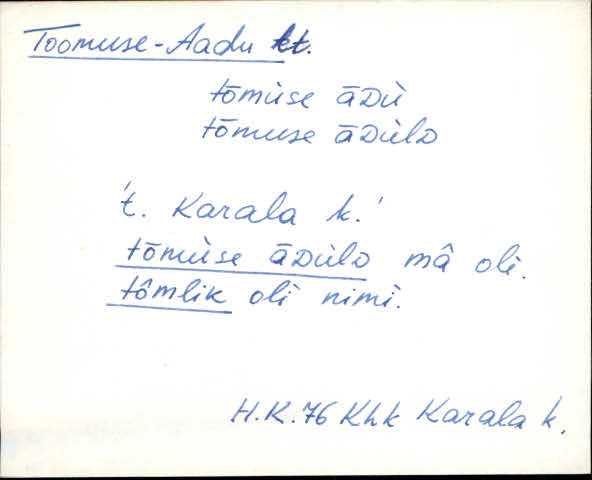 Toomuse-Aadu kt.
tōmùse āᴅù
tōmuse āᴅùlᴅ
't. Karala k.'
tōmùse āᴅùlᴅ mâ oli.
tômlik oli nimi.
H.K. 76 Khk Karala k.